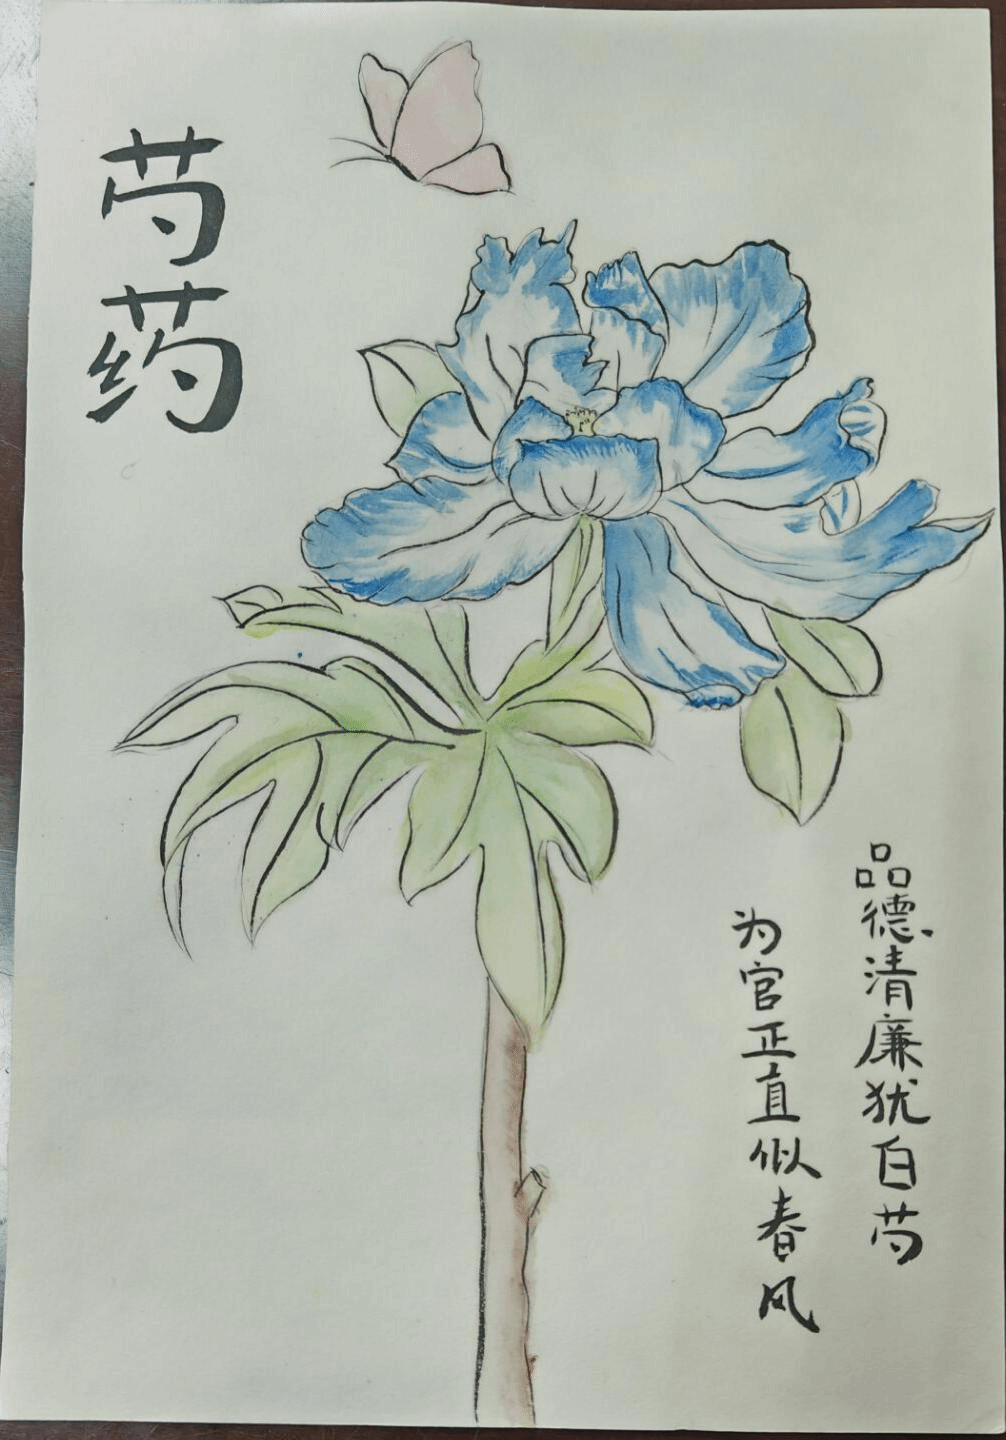 芍药
品德清廉犹白芍
为官正直似春风